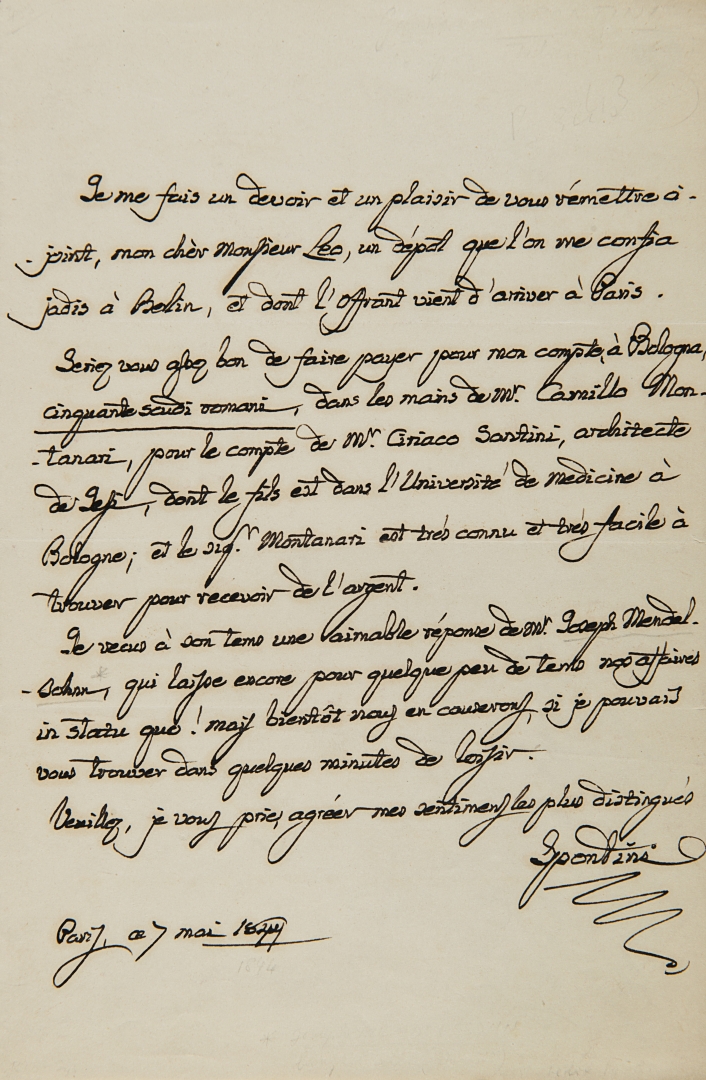 Je me fais un devoir et un plaisir de vous rémettre ci-
-joint, mon chèr Monsieur Leo, un dépôt que l'on me confia
jadis à Berlin, et dont l'offrant vient d'arriver à Paris.
Seriez vous assez bon de faire payer pour mon compte, à Bologna,
cinquante scudi romani, dans les mains de Mr. Camillo Mon-
-tanari, pour le compte de Mr. Ciriaco Santini, architecte
de Jesi, dont le fils est dans l'Université de Medicine à
Bologne; et le sigr. Montanari est très connu et très facile à
trouver pour recevoir de l'argent.
Je reçus à son tems une aimable réponse de Mr. Joseph Mendel-
-sohn, qui laisse encore pour quelque peu de tems nos affaires
in statu quo! mais bientôt nous en causerons, si je pouvais
vous trouver dans quelques minutes de loisir.
Veuillez, je vous prie, agréer mes sentimens les plus distingués
Spontini
Paris, ce 7 mai 1844